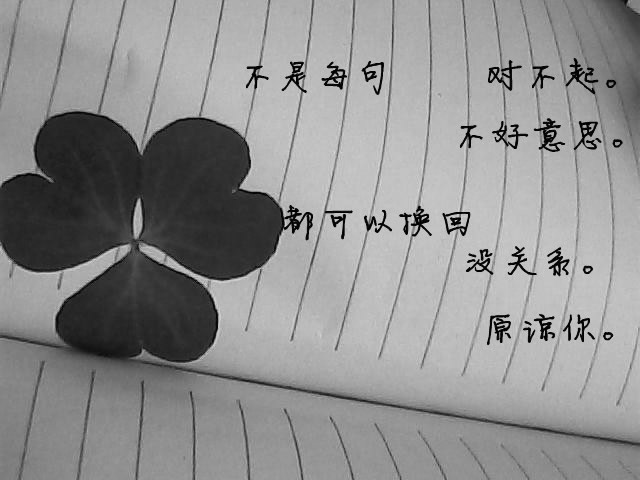 不是每句 对不起。
不好意思。
都可以换回
没关系。
原谅你。